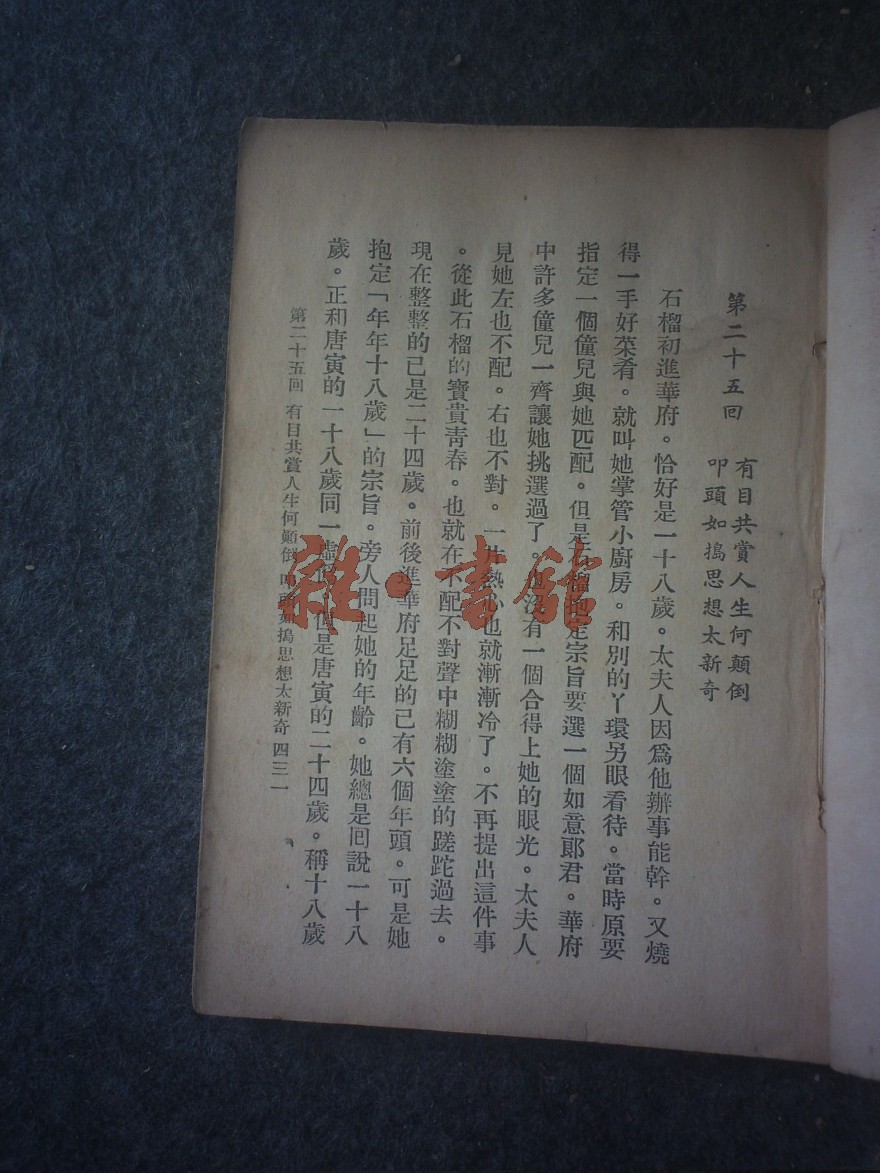 第二十五回
有目共賞人生何顛倒
叩頭如搗思想太新奇
石榴初進華府。恰好是一十八歲。太夫人因爲他辦事能幹。又燒
得一手好菜肴。就叫她掌管小廚房。和別的丫環另眼看待。當時原要
指定一個僮兒與她匹配。但是石榴抱定宗旨要選一個如意郞君。華府
中許多僮兒一齊讓她挑選過了。也沒有一個合得上她的眼光。太夫人
見她左也不配。右也不對。一片熱心也就漸漸冷了。不再提出這件事
。從此石榴的寶貴靑春。也就在不配不對聲中糊糊塗塗的蹉跎過去。
現在整整的已是二十四歲。前後進華府足足的已有六個年頭。可是她
抱定「年年十八歲」的宗旨。旁人問起她的年齡。她總是囘說一十八
歲。正和唐寅的一十八歲同一虛假。但是唐寅的二十四歲。稱十八歲
第二十五回 有目共賞人生何顛倒 叩頭如搗思想太新奇 四三一
雜·書館